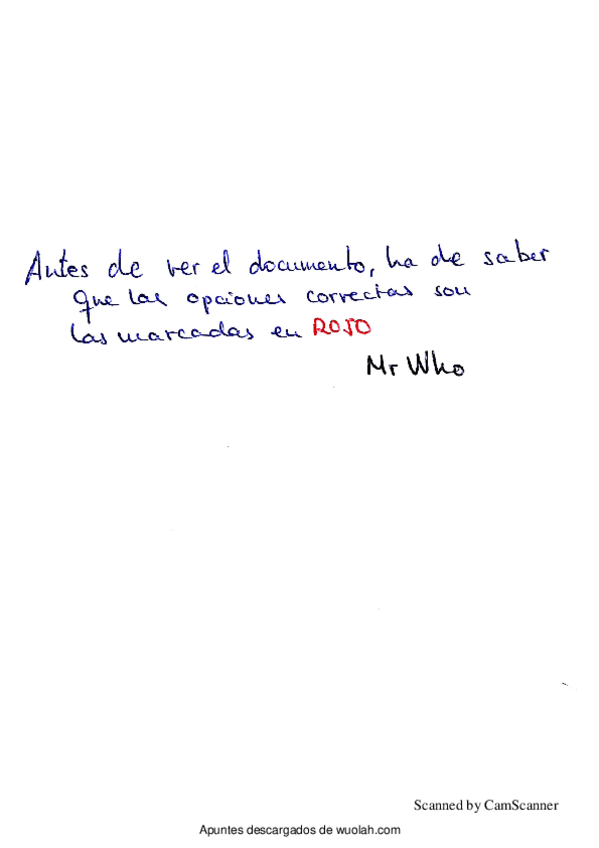 Antes de ver el documento, ha de saber
que las opciones correctas son
las marcadas en ROJO
Mr Who
Scanned by CamScanner
Apuntes descargados de wuolah.com